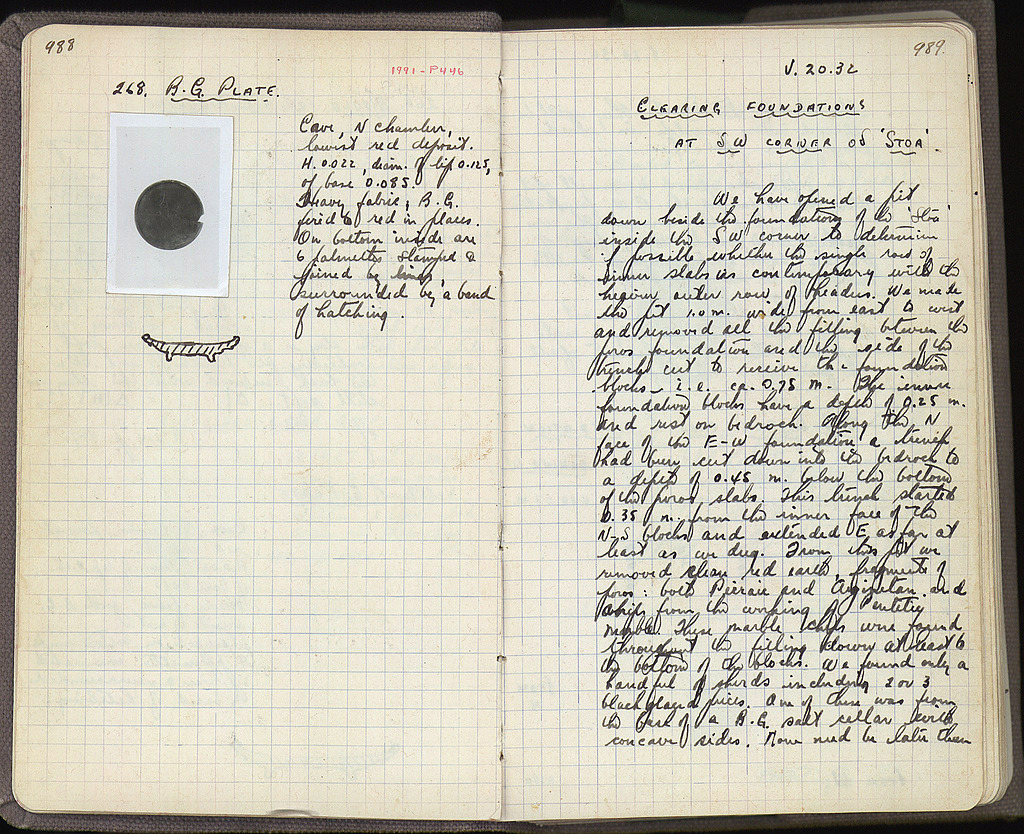 988
268. B.G. PLATE.
1991-P446
Cave, N chamber,
lowest red deposit.
H. 0.022, diam. of lip 0.125,
of base 0.085.
Heavy fabric; B.G.
fired to red in places.
On bottom inside are
6 palmettes stamped &
joined by lines,
surrounded by a band
of hatching.
989.
V. 20.32
CLEARING FOUNDATIONS
AT SW CORNER OF 'STOA'.
We have opened a pit
down beside the foundations of the 'Stoa'
inside the SW corner to determine
if possible whether the single row of
inner slabs is contemporary with the
heavier outer row of headers. We made
the pit 1.0 m. wide from east to west
and removed all the filling between the
poros foundation and the side of the
trench cut to receive the foundation
blocks - i.e. ca. 0.75 m. The inner
foundation blocks have a depth of 0.25 m.
and rest on bedrock. Along the N
face of the E-W foundation a trench
had been cut down into the bedrock to
a depth of 0.45 m. below the bottom
of the poros slabs. This trench started
0.35 m. from the inner face of the
N-S blocks and extended E as far at
least as we dug. From this pit we
removed clean red earth, fragments of
poros: both Peiraic and Aiginetan, and
chips from the working of Pentelic
marble. These marble chips were found
throughout the filling down at least to
the bottom of the blocks. We found only a
handful of sherds including 2 or 3
black glazed pieces. One of these was from
the base of a B.G. salt cellar with
concave sides. None need be later than